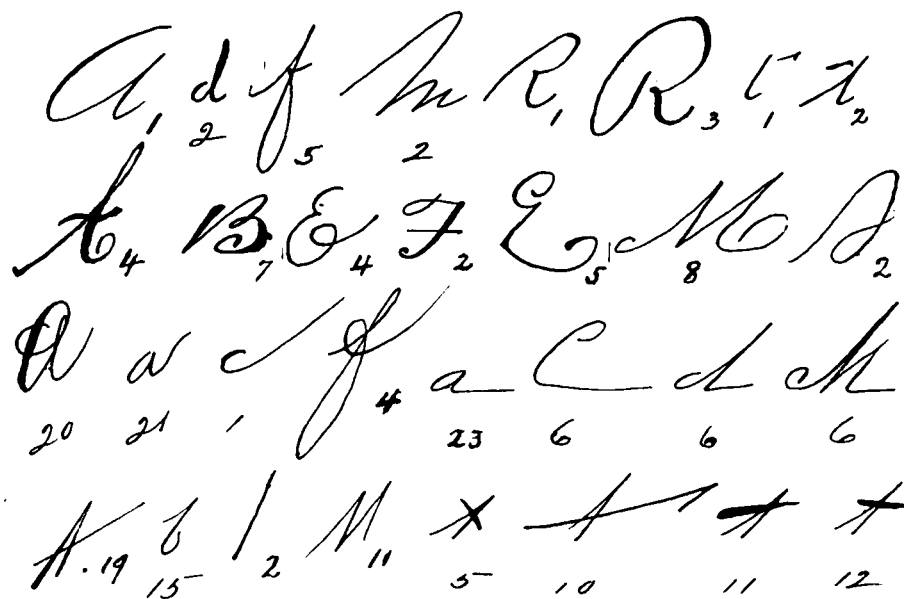 A 1 d 2 f 5 m 2 R 1 R 3 r 1 x 2
A 4 B 7 E 4 F 2 E 5 M 8 A 2
a 20 a 21 c 1 f 4 a 23 C 6 d 6 M 6
A. 19 b 15 l 2 M 11 x 5 A 10 t 11 t 12